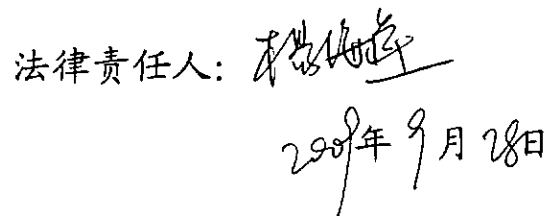 法律责任人：
2009年9月28日